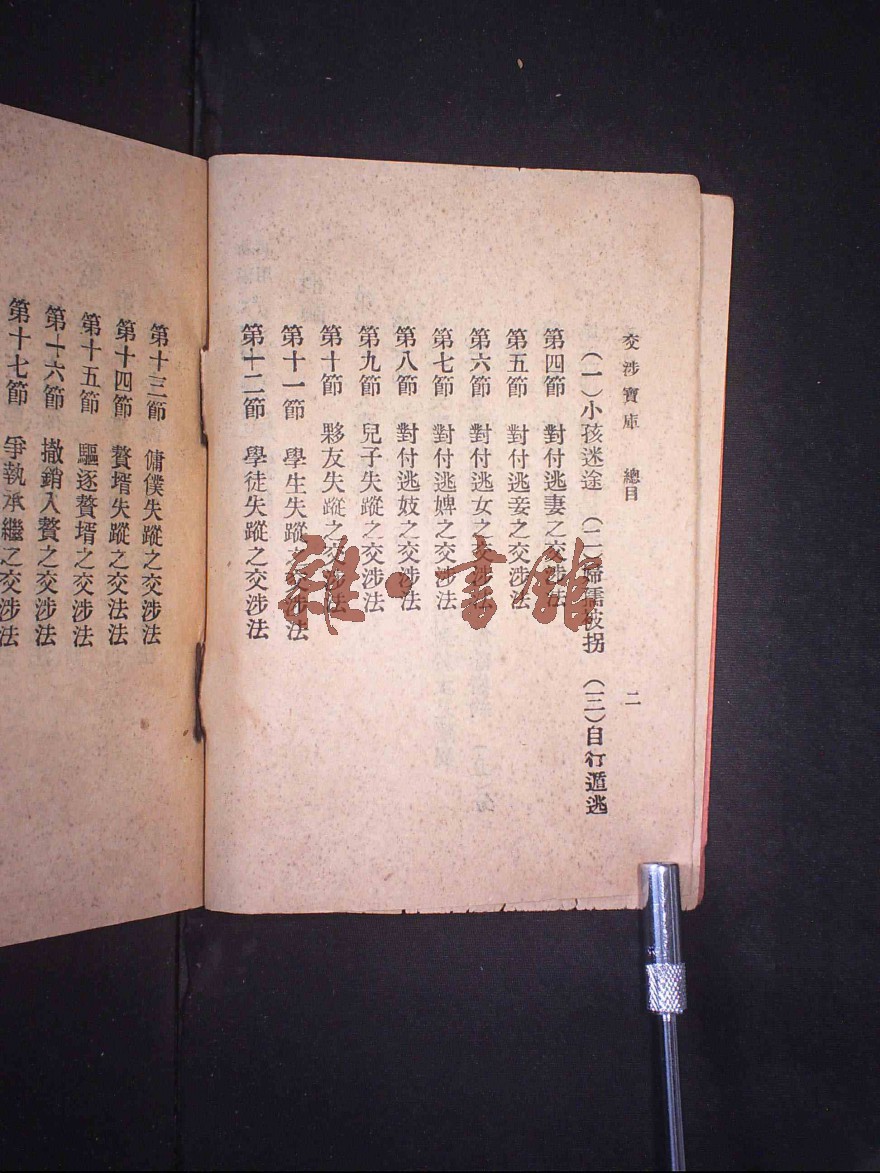 交涉寶庫 總目 二
（一）小孩迷途 （二）婦孺被拐 （三）自行遁逃
第四節 對付逃妻之交涉法
第五節 對付逃妾之交涉法
第六節 對付逃女之交涉法
第七節 對付逃婢之交涉法
第八節 對付逃妓之交涉法
第九節 兒子失蹤之交涉法
第十節 夥友失蹤之交涉法
第十一節 學生失蹤之交涉法
第十二節 學徒失蹤之交涉法
第十三節 傭僕失蹤之交涉法
第十四節 贅壻失蹤之交法法
第十五節 驅逐贅壻之交涉法
第十六節 撤銷入贅之交涉法
第十七節 爭執承繼之交涉法
雜·書館